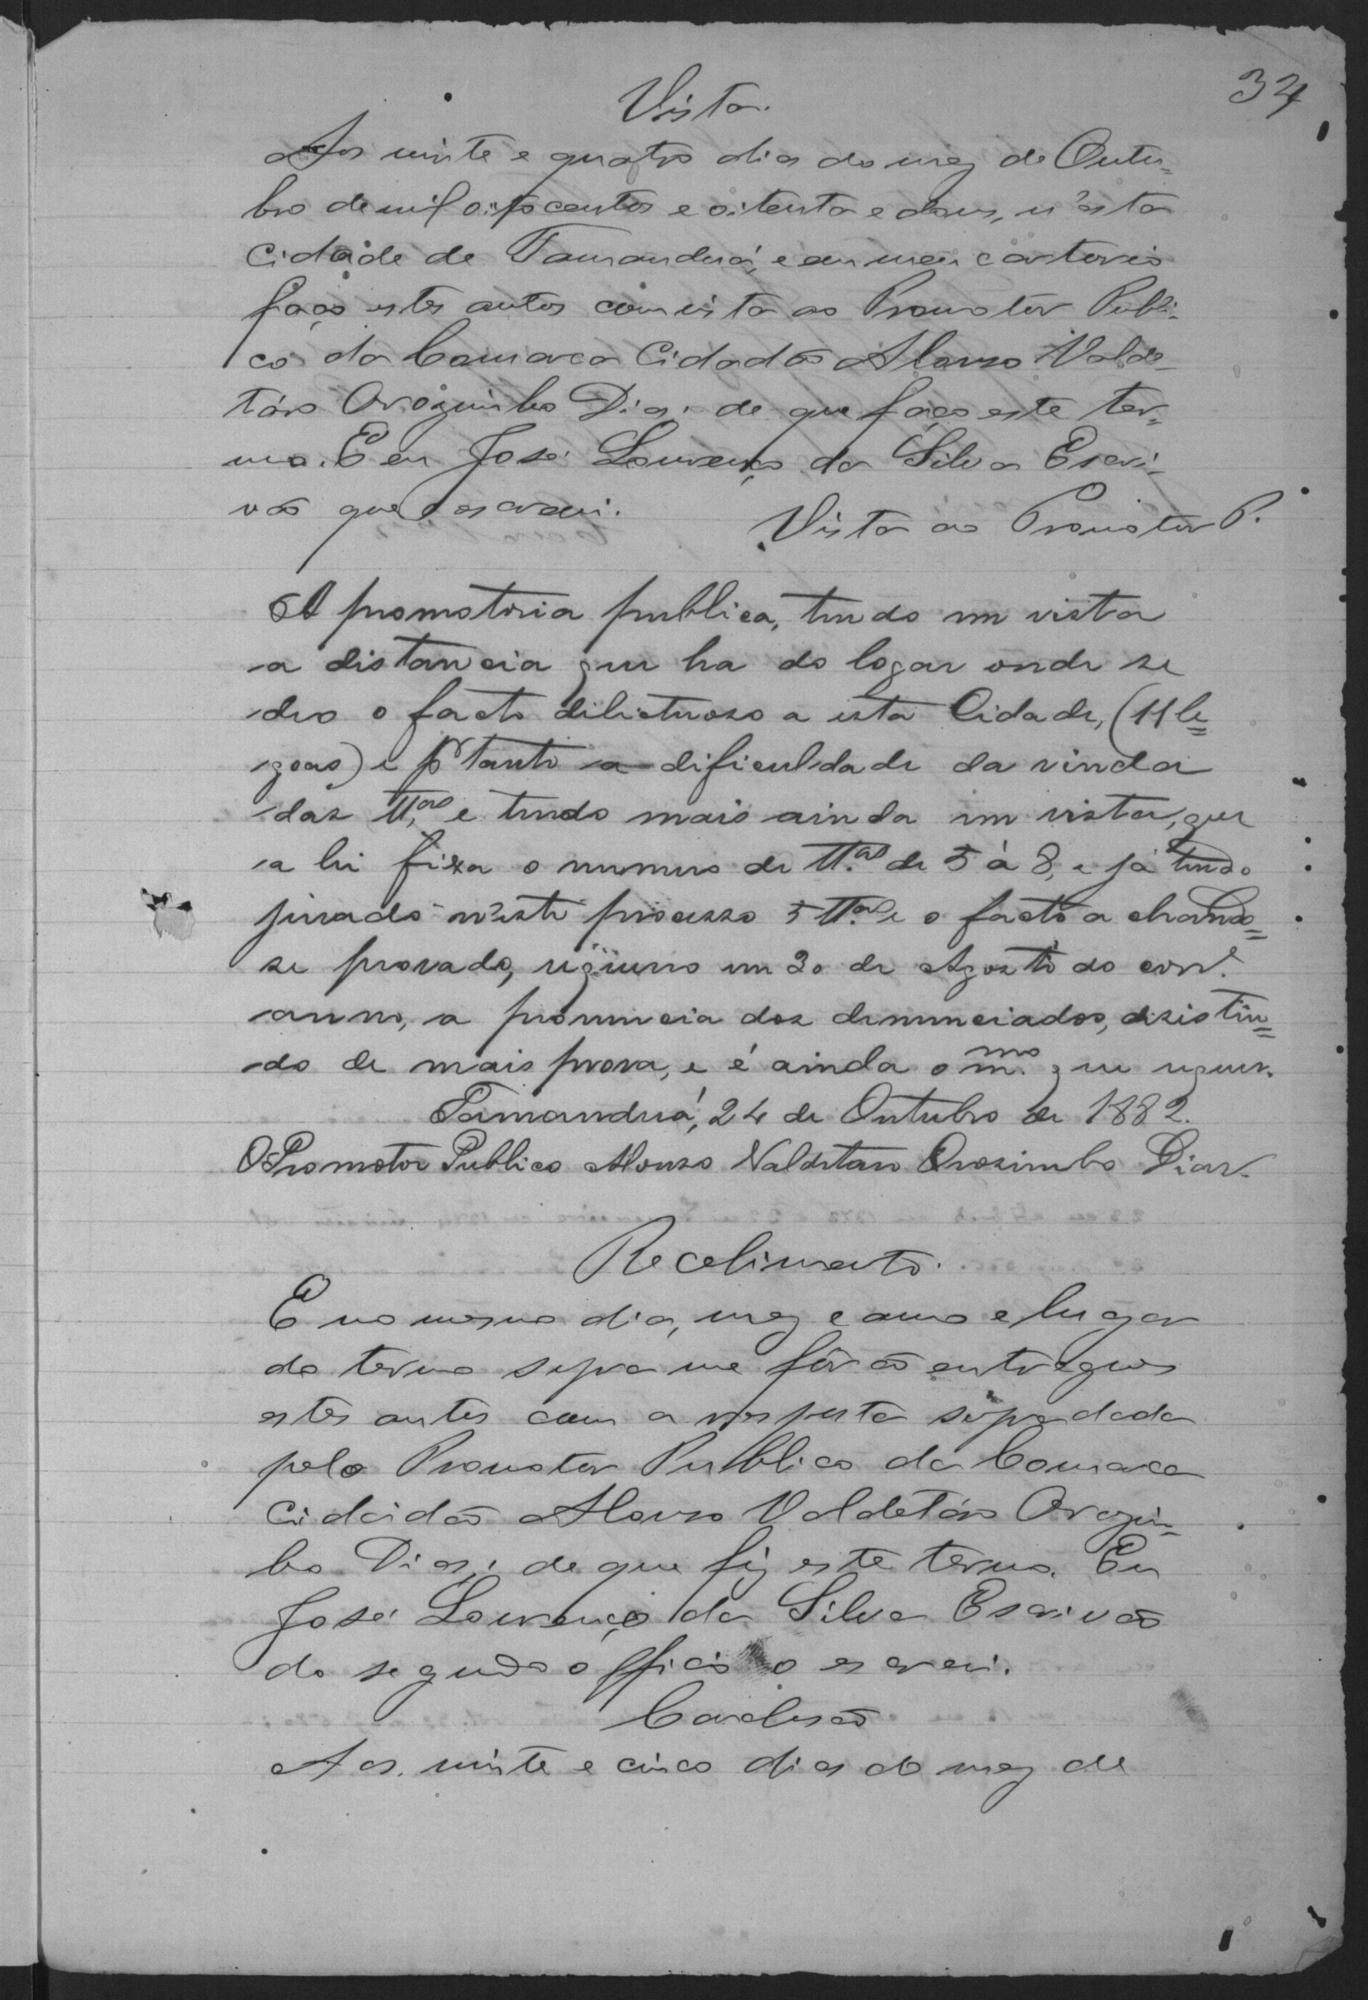 34
Vista.
Aos vinte e quatro dias do mez de Outu-
bro de mil oitocentos e oitenta e dous, n'esta
Cidade de Tamanduá, e em meu cartorio
faço estes autos com vista ao Promotor Publi-
co da Comarca Cidadão Alonso Valde-
táro Orozimbo Dias; de que faço este ter-
mo. E eu José Lourenço da Silva Escri-
vão que o escrevi.
Vista ao Promotor P.
A promotoria publica, tendo em vista
a distancia que ha do logar onde se
deo o facto delictuoso a esta Cidade, (11 le-
goas) e pr tanto a dificuldade da vinda
das TT.as e tendo mais ainda em vista, que
a lei fixa o numero de TT.as de 5 á 8, e já tendo
jurado n'este processo 5 TT.as e o facto achando-
se provado, requereo em 30 de Agosto do corr.e
anno, a pronuncia dos denunciados, desistin-
do de mais prova, e é ainda o m.mo que requer.
Tamanduá, 24 de Outubro de 1882.
O Promotor Publico Alonso Valdetaro Orosimbo Dias.
Recebimento.
E no mesmo dia, mez e anno e lugar
do termo supra me fôrão entregues
estes autos com a resposta supra dada
pelo Promotor Publico da Comarca
Cidadão Alonso Valdetáro Orozim-
bo Dias; de que fiz este termo. Eu
José Lourenço da Silva Escrivão
do segundo officio o escrevi.
Conclusão
Aos vinte e cinco dias do mez de